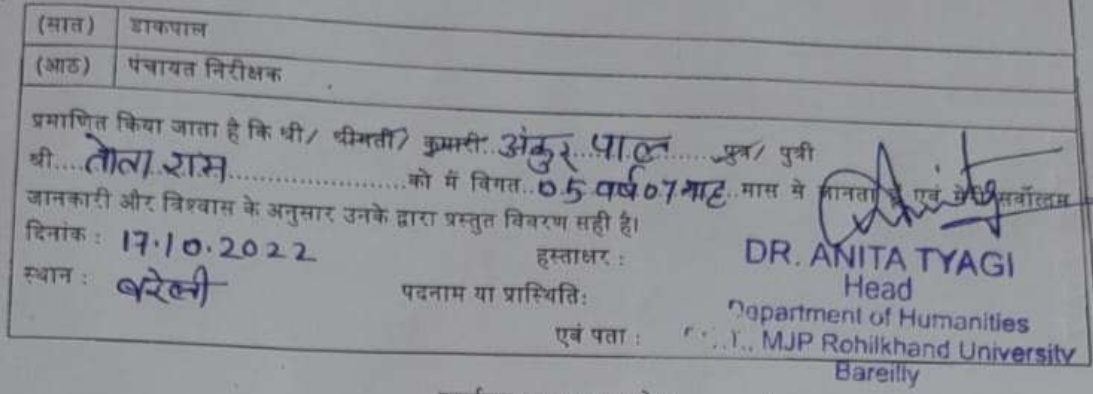 (सात) डाकपाल
(आठ) पंचायत निरीक्षक
प्रमाणित किया जाता है कि श्री/ श्रीमती/ कुमारी..अंकुर पाल......पुत्र/ पुत्री
श्री....तोता राम........................को में विगत..05 वर्ष 07 माह..मास से मानता एवं सर्वोत्तम
जानकारी और विश्वास के अनुसार उनके द्वारा प्रस्तुत विवरण सही है।
दिनांक : 17.10.2022
हस्ताक्षर :
स्थान : बरेली
पदनाम या प्रास्थिति:
एवं पता :
DR. ANITA TYAGI
Head
Department of Humanities
MJP Rohilkhand University
Bareilly